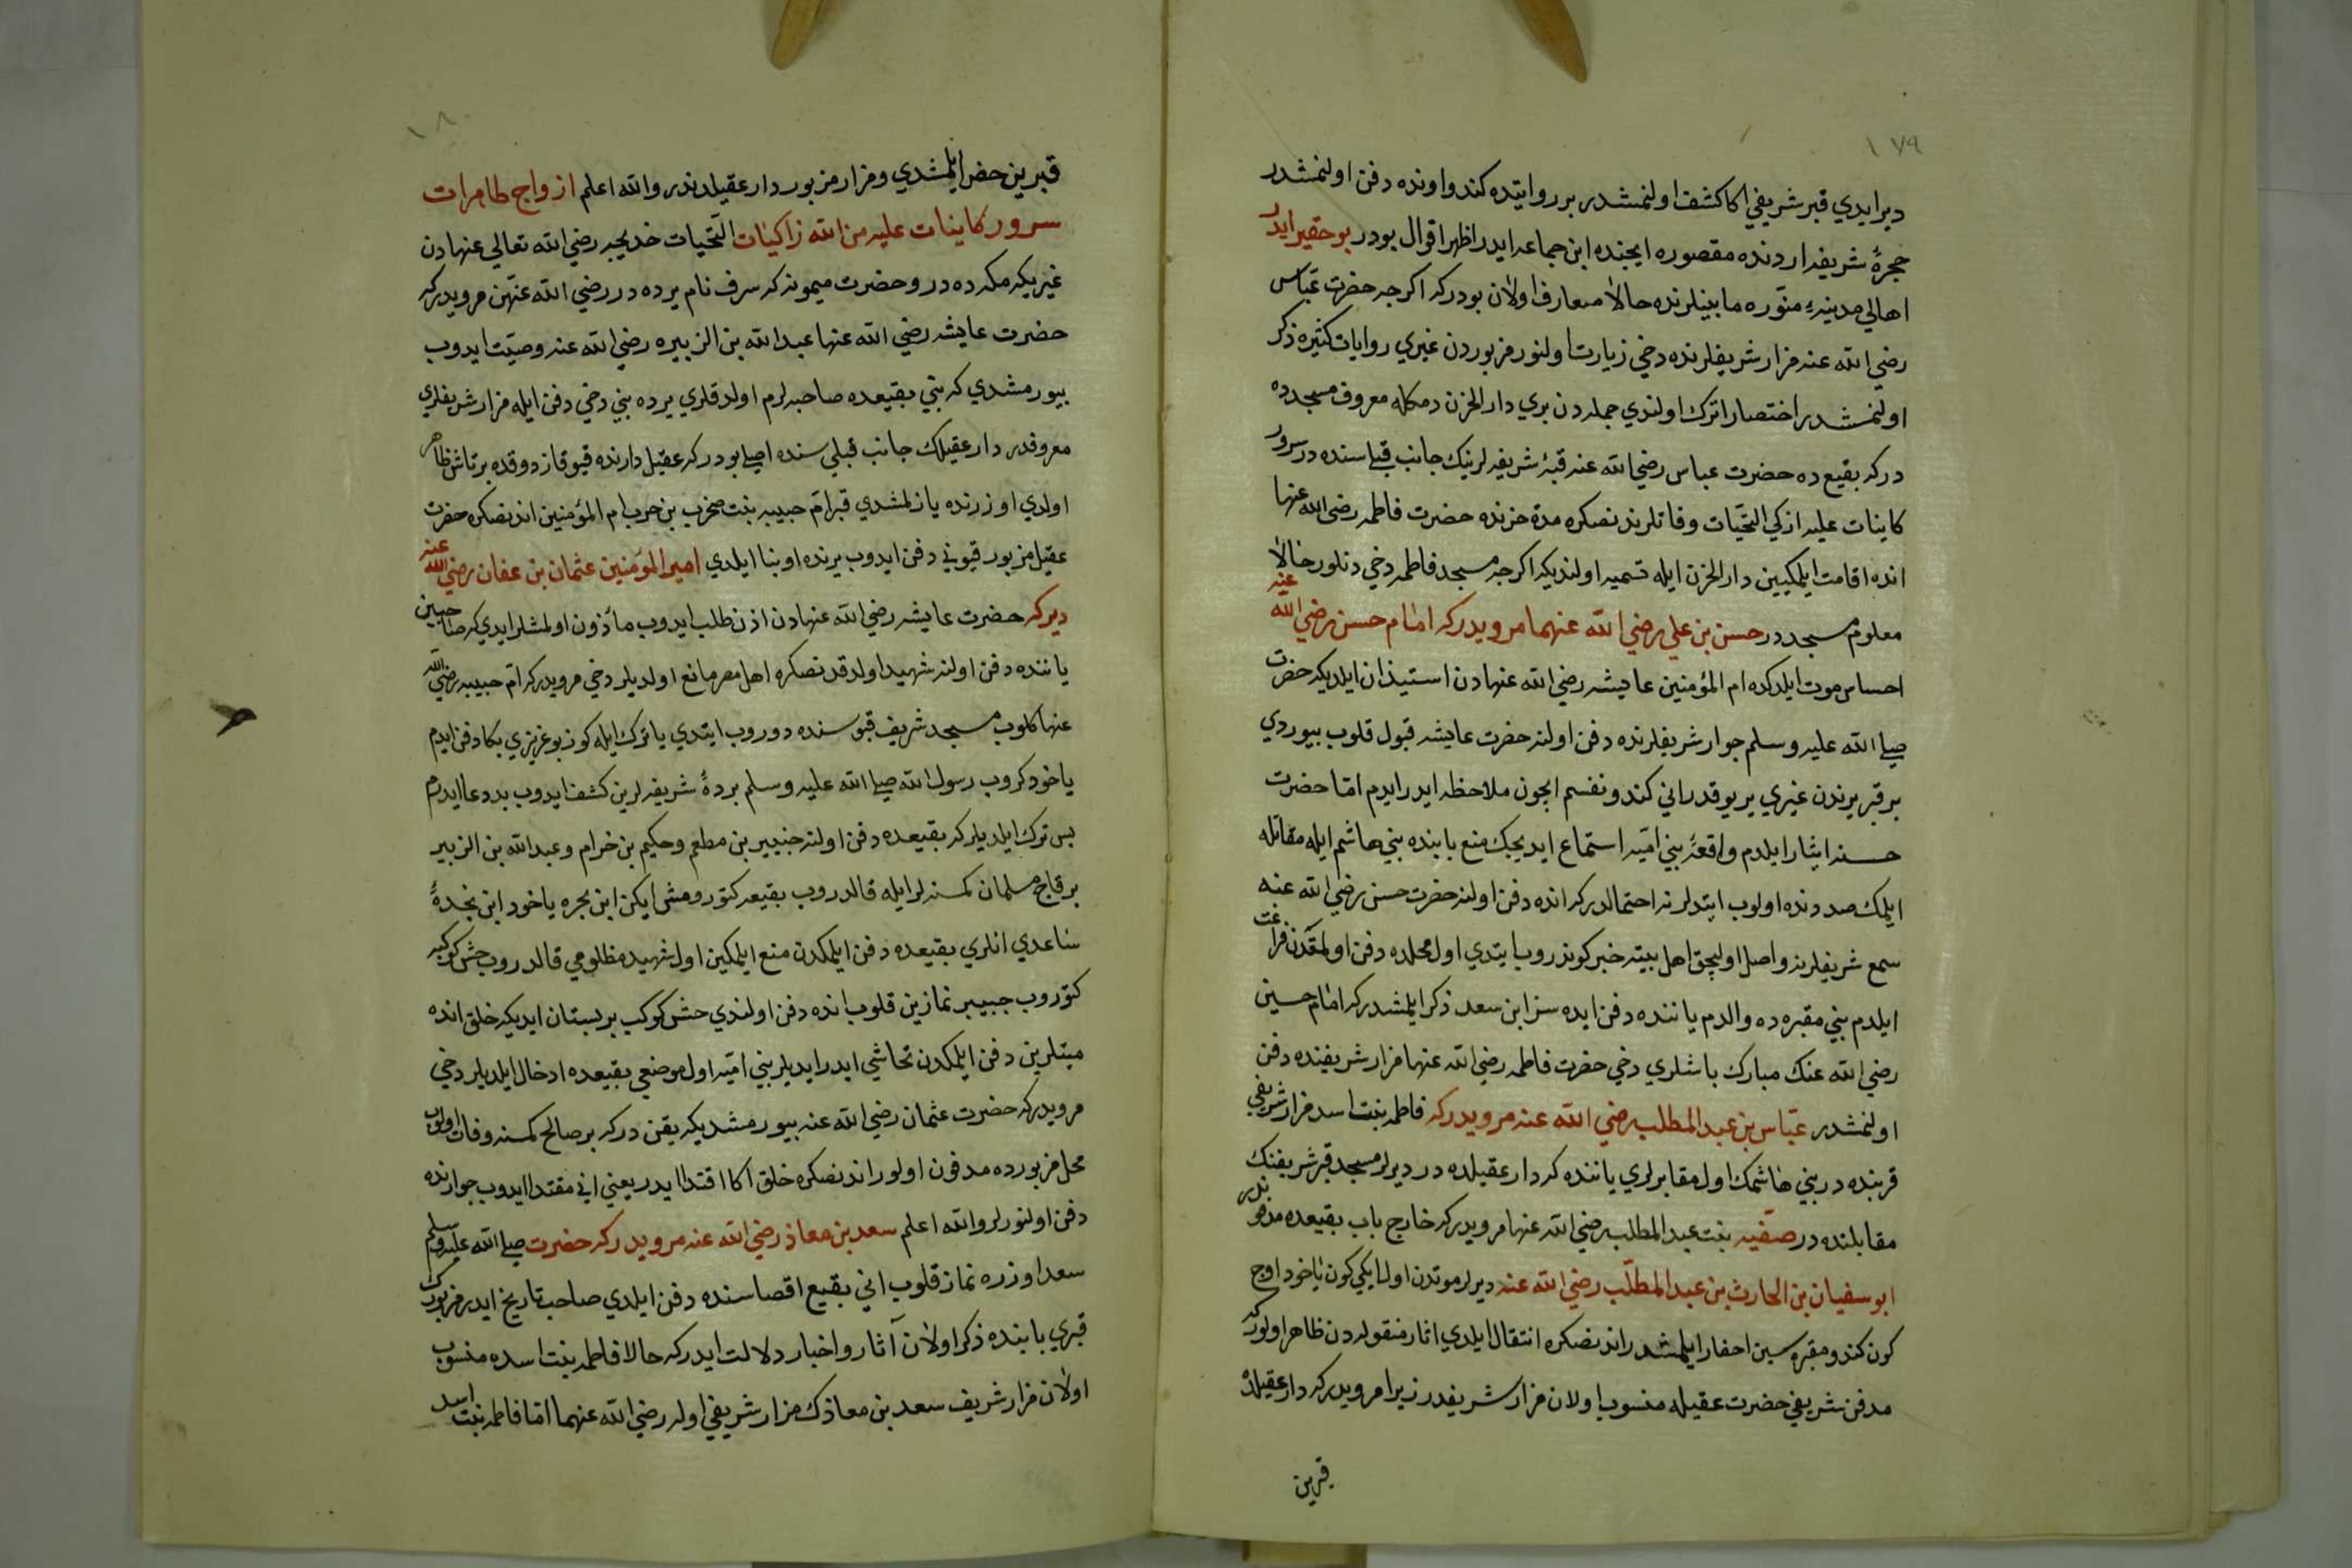 ١٧٩
ديرايدي قبر شريفي اكا كشف اولنمشدر بر روايتده كندو اونده دفن اولنمشدر
حجرهٔ شريفه اردنده مقصوره ايچنده ابن جماعه ايدر اظهر اقوال بودر بو حقير ايدر
اهالي مدينهٔ منوّره مابينلرنده حالا متعارف اولان بودركه اكرچه حضرت عبّاس
رضي الله عنه مزار شريفلرنده دخي زيارت اولنور مزبوردن غيري روايات كثيره ذكر
اولنمشدر اختصارا ترك اولندي جمله دن بري دار الحزن دمكله معروف مسجدده
دركه بقيعده حضرت عباس رضي الله عنه قبهٔ شريفه لرينك جانب قبلي سنده در سرور
كاينات عليه ازكي التحيّات وفاتلرندنصكره مدة حزنده حضرت فاطمه رضي الله عنها
انده اقامت ايلمكيين دار الحزن ايله تسميه اولنديكه اكرچه مسجد فاطمه دخي دنلور حالا
معلوم مسجددر حسن بن علي رضي الله عنهما مرويدركه امام حسن رضي الله عنه
احساس موت ايلدكده ام المؤمنين عايشه رضي الله عنهادن استيذان ايلديكه حضرت
صلي الله عليه وسلم جوار شريفلرنده دفن اولنه حضرت عايشه قبول قلوب بيوردي
بر قبر يرندن غيري ير يوقدر اني كندو نفسم ايچون ملاحظه ايدرايدم امّا حضرت
حسنه ايثار ايلدم واقعهٔ بني اميّه استماع ايديجك منع بابنده بني هاشم ايله مقاتله
ايلمك صددنده اولوب ابتدلرنه احتمالدركه انده دفن اولنه حضرت حسن رضي الله عنه
سمع شريفلرينه واصل اوليجق اهل بيتنه خبر كوندروب ايتدي اول محلده دفن اولمقدن فراغت
ايلدم بني مقبره ده والدم ياننده دفن ايده سز ابن سعد ذكر ايلمشدركه امام حسين
رضي الله عنك مبارك باشلري دخي حضرت فاطمه رضي الله عنها مزار شريفنده دفن
اولنمشدر عبّاس بن عبد المطلب رضي الله عنه مرويدركه فاطمه بنت اسد مزار شريفي
قربنده در بني هاشمك اول مقابرلري ياننده كه دار عقيلده در ديرلر مسجد قبر شريفنك
مقابلنده در صفيّه بنت عبد المطلب رضي الله عنها مرويدركه خارج باب بقيعده مدفوندر
ابو سفيان بن الحارث بن عبد المطلّب رضي الله عنه ديرلر موتدن اول ايكي كون ياخود اوچ
كون كندو مقبره سين احفار ايلمشدر اندنصكره انتقال ايلدي اثار منقوله دن ظاهر اولوركه
مدفن شريفي حضرت عقيله منسوب اولان مزار شريفدر زيرا مرويدركه دار عقيلده
قبرين
١٨٠
قبرين حفر ايلمشدي و مزار مزبور دار عقيلدندر والله اعلم ازواج طاهرات
سرور كاينات عليه من الله زاكيات التحيات خديجه رضي الله تعالي عنهادن
غيريكه مكه ده در و حضرت ميمونه كه سرف نام يرده در رضي الله عنهن مرويدركه
حضرت عايشه رضي الله عنها عبد الله بن الزبيره رضي الله عنه وصيّت ايدوب
بيورمشدي كه بني بقيعده صاحبه لرم اولدقلري يرده بني دخي دفن ايله مزار شريفلري
معروفدر دار عقيلك جانب قبلي سنده اصلي بودركه عقيل دارنده قيو قازدوقده بر تاش ظاهر
اولدي اوزرنده يازلمشدي قبر امّ حبيبه بنت صخر بن حرب ام المؤمنين اندنصكره حضرت
عقيل مزبور قيوني دفن ايدوب يرنده او بنا ايلدي امير المؤمنين عثمان بن عفان رضي الله عنه
ديركه حضرت عايشه رضي الله عنهادن اذن طلب ايدوب مأذون اولمشلرايدي كه صاحبين
ياننده دفن اولنه شهيد اولدقدنصكره اهل مصر مانع اولديلر دخي مرويدركه امّ حبيبه رضي الله
عنها كلوب مسجد شريف قپوسنده دوروب ايتدي يا ترك ايله كوز بو عزيزي بكا دفن ايدم
ياخود كروب رسول الله صلي الله عليه وسلم بردهٔ شريفه لرين كشف ايدوب بددعا ايدرم
بس ترك ايلديلركه بقيعده دفن اولنه جبير بن مطعم وحكيم بن خرام وعبد الله بن الزبير
بر قاچ مسلمان كمسنه لر ايله قالدروب بقيعه كتورومش ايكن ابن بجره ياخود ابن نجدهٔ
ساعدي انلري بقيعده دفن ايلمكدن منع ايلمكين اول شهيد مظلومي قالدروب حش كوكبه
كتوروب جبير نمازين قلوب انده دفن اولندي حش كوكب بر بستان ايديكه خلق انده
ميتلرين دفن ايلمكدن تحاشي ايدرايديلر بني اميّه اول موضعي بقيعده ادخال ايلديلر دخي
مرويدركه حضرت عثمان رضي الله عنه بيورمشديكه يقن دركه بر صالح كمسنه وفات اولوب
محل مزبورده مدفون اولور اندنصكره خلق اكا اقتدا ايدر يعني اني مقتدا ايدوب جوارنده
دفن اولنورلر والله اعلم سعد بن معاذ رضي الله عنه مرويدركه حضرت صلي الله عليه وسلم
سعد اوزره نماز قلوب اني بقيع اقصاسنده دفن ايلدي صاحب تاريخ ايدر مزبورك
قبري بابنده ذكر اولان آثار واخبار دلالت ايدركه حالا فاطمه بنت اسده منسوب
اولان مزار شريف سعد بن معاذك مزار شريفي اوله رضي الله عنهما امّا فاطمه بنت اسد